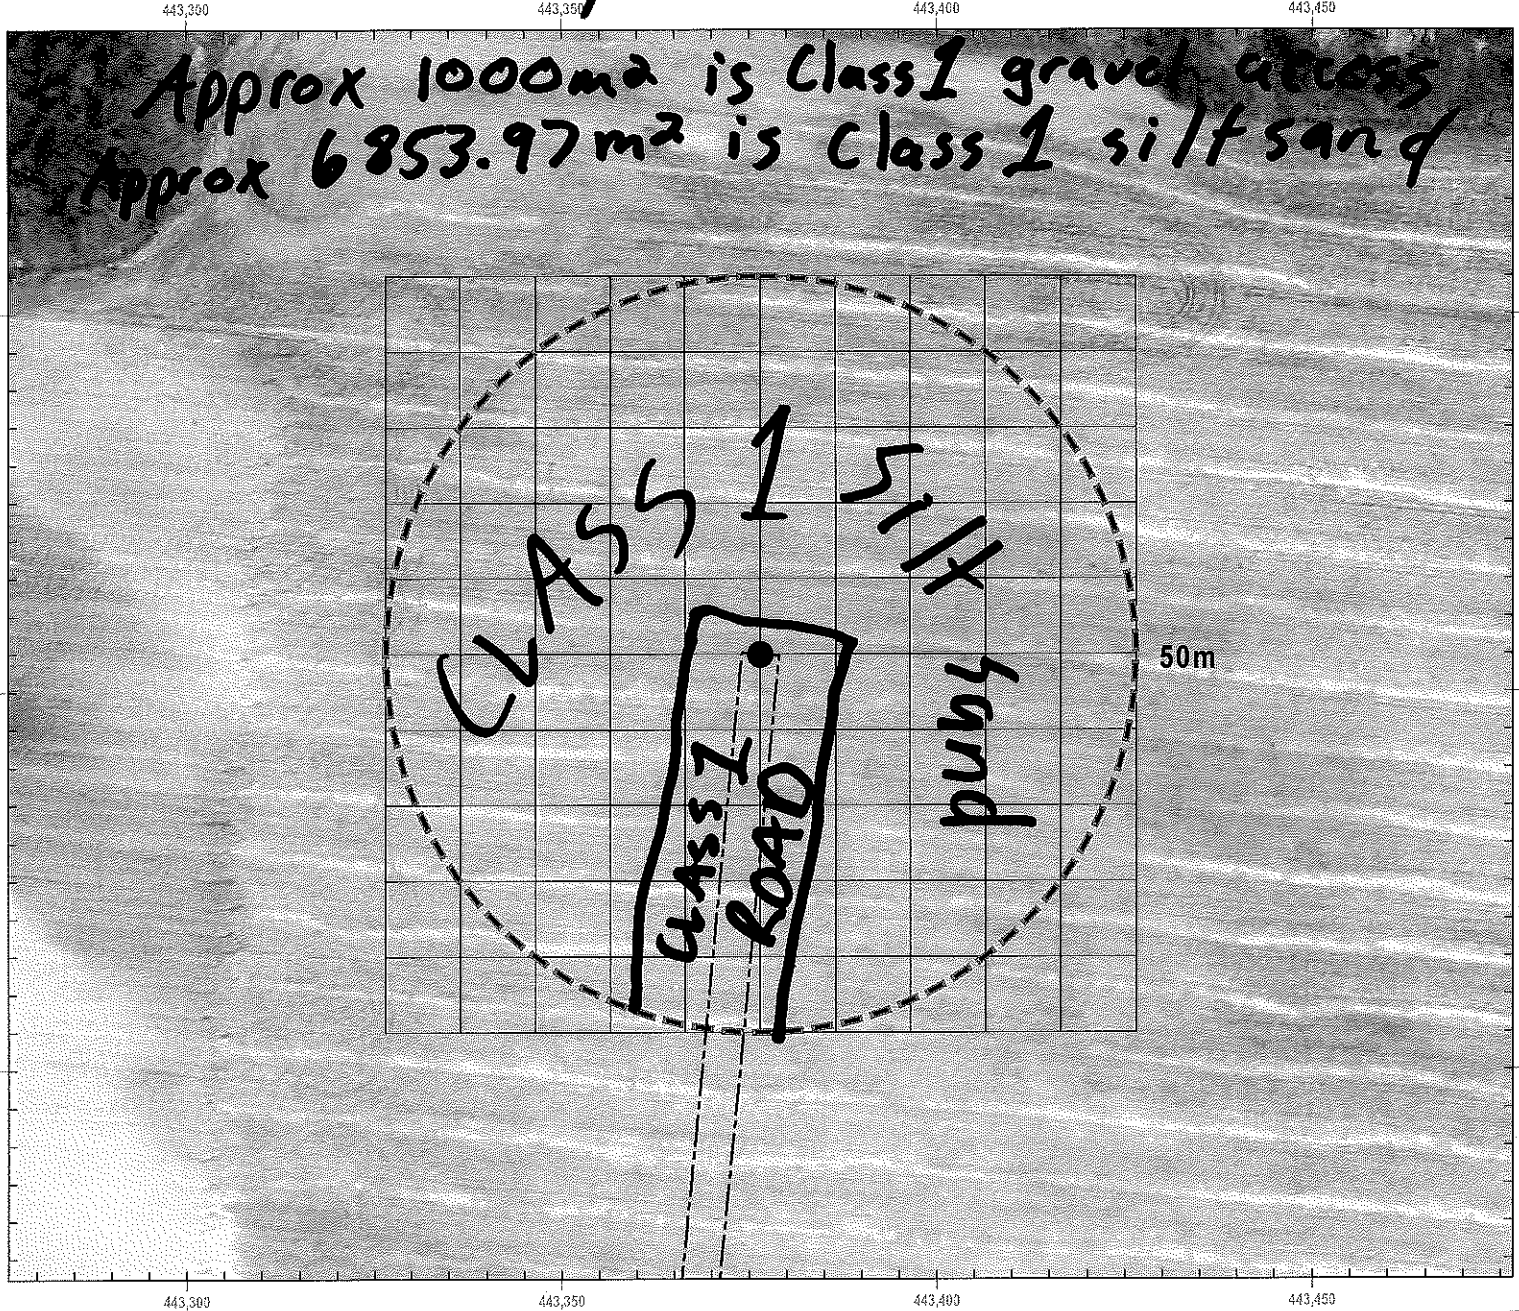 443,300 443,350 443,400 443,450
Approx 1000m² is Class1 gravel access
Approx 6853.97m² is Class1 silt sand
CLASS 1 silt sand
50m
CLASS 1
ROAD
443,300 443,350 443,400 443,450